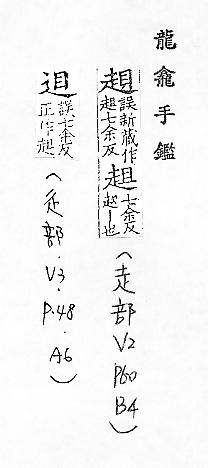 龍龕手鑑
誤新藏作
趄七余反
趄
七余反
趑｜也
(走部 V2 P60 B4)
誤七余反
正作趄
(辵部·V3·P.48·A6)